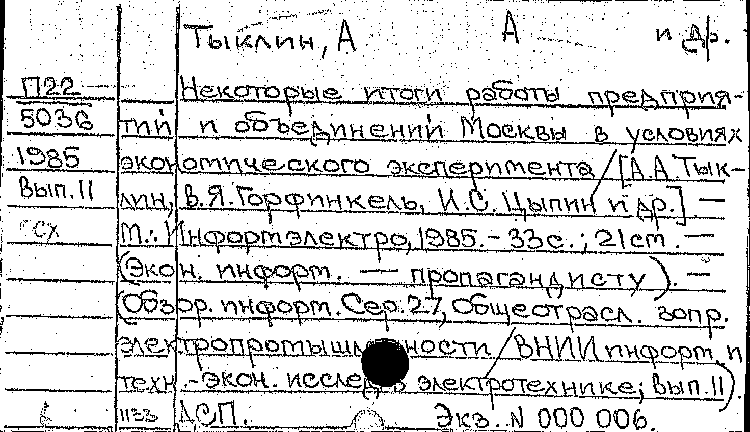 Тыклин, А А и др.
П22 Некоторые итоги работы предприя-
5036 тий и объединений Москвы в условиях
1985 экономического эксперимента / [А.А. Тык-
Вып.11 лин, В.Я. Горфинкель, И.С. Цыпин и др.] —
сх М.: Информэлектро, 1985. - 33 с.; 21 см. —
(Экон. информ. — пропагандисту). —
(Обзор. информ. Сер. 27, Общеотрасл. вопр.
электропромышленности / ВНИИ информ. и
техн.-экон. исслед. в электротехнике; Вып. 11).
1133 ДСП. Экз. N 000 006.